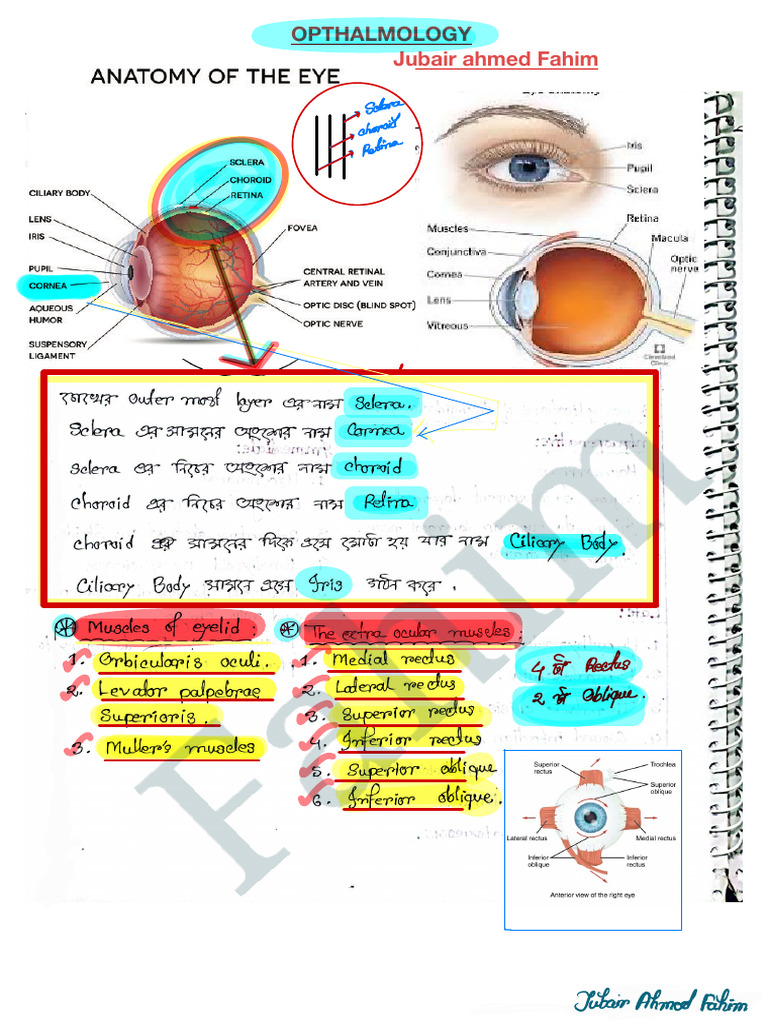 OPTHALMOLOGY
Jubair ahmed Fahim
ANATOMY OF THE EYE
Sclera
choroid
Retina
SCLERA
CHOROID
RETINA
CILIARY BODY
LENS
IRIS
PUPIL
CORNEA
AQUEOUS
HUMOR
SUSPENSORY
LIGAMENT
FOVEA
CENTRAL RETINAL
ARTERY AND VEIN
OPTIC DISC (BLIND SPOT)
OPTIC NERVE
Iris
Pupil
Sclera
Retina
Macula
Optic
nerve
Muscles
Conjunctiva
Cornea
Lens
Vitreous
Cleveland
Clinic
চোখের outer most layer এর নাম Sclera.
Sclera এর সামনের অংশের নাম Cornea
Sclera এর নিচের অংশের নাম choroid
choroid এর নিচের অংশের নাম Retina
choroid এর সামনের দিকে এসে মোটা হয় যার নাম Ciliary Body.
Ciliary Body সামনে এসে Iris গঠন করে.
Muscles of eyelid:
1. Orbicularis oculi.
2. Levador palpebrae
Superioris.
3. Muller's muscles
The extra ocular muscles:
1. Medial rectus
2. Lateral rectus
3. Superior rectus
4. Inferior rectus
5. Superior oblique
6. Inferior oblique.
4 টা Rectus
2 টা Oblique.
Superior
rectus
Trochlea
Superior
oblique
Lateral rectus
Medial rectus
Inferior
oblique
Inferior
rectus
Anterior view of the right eye
Fahim
Jubair Ahmed Fahim